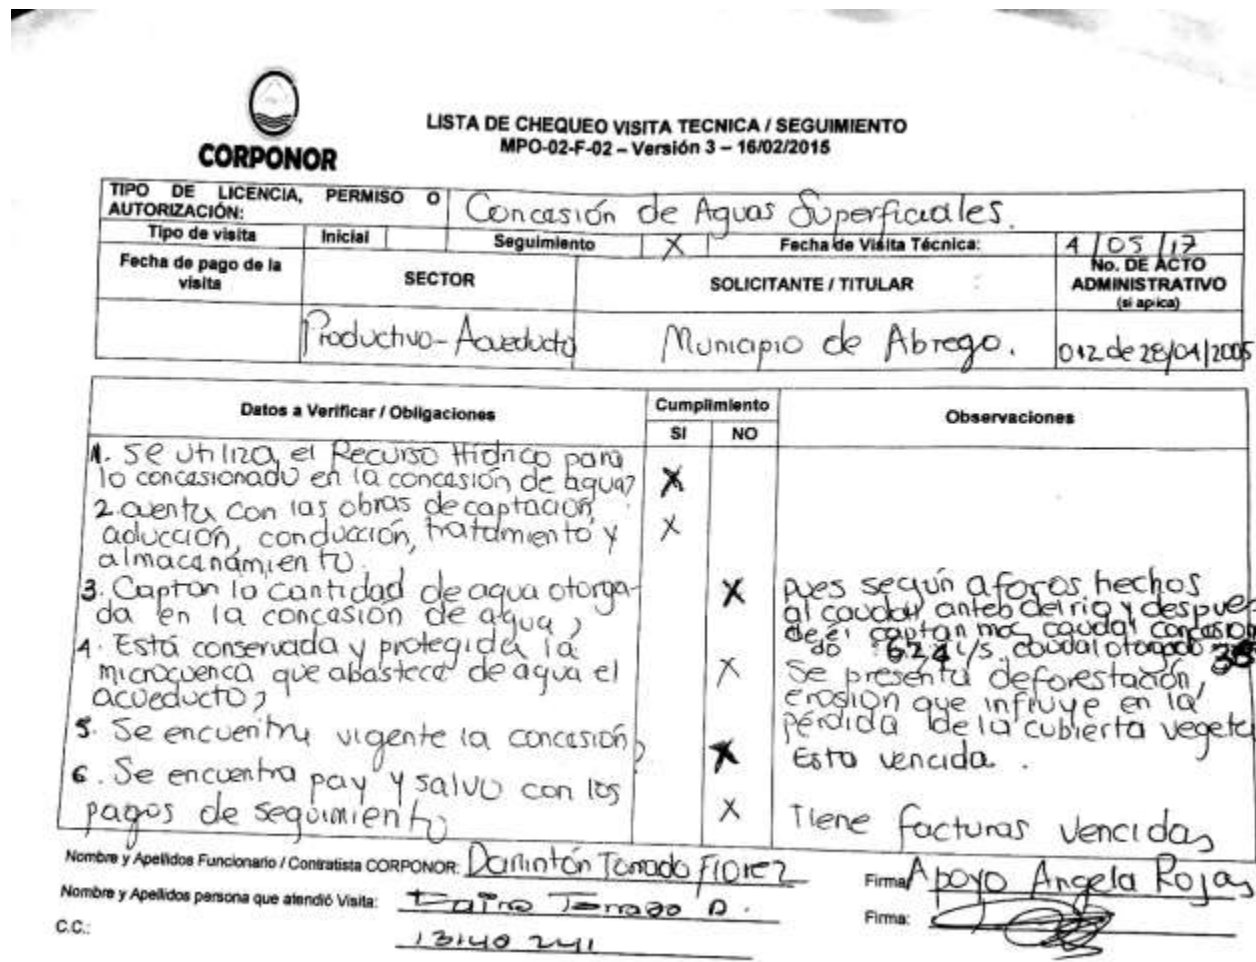 CORPONOR
LISTA DE CHEQUEO VISITA TECNICA / SEGUIMIENTO
MPO-02-F-02 – Versión 3 – 16/02/2015
TIPO DE LICENCIA, PERMISO O AUTORIZACIÓN: Concesión de Aguas Superficiales.
Tipo de visita Inicial Seguimiento X Fecha de Visita Técnica: 4/05/17
Fecha de pago de la visita SECTOR SOLICITANTE / TITULAR No. DE ACTO ADMINISTRATIVO (si aplica)
Productivo-Acueducto Municipio de Abrego. 012 de 28/04/2005
Datos a Verificar / Obligaciones Cumplimiento Observaciones
SI NO
1. Se utiliza el Recurso Hídrico para
lo concesionado en la concesión de agua? X
2. cuenta con las obras de captación,
aducción, conducción, tratamiento y X
almacenamiento.
3. Captan la cantidad de agua otorga- X pues según aforos hechos
da en la concesión de agua? al caudal antes del rio y despues
de el captan mas caudal concesiona
4. Está conservada y protegida la do 62.4 L/s caudal otorgado 38
microcuenca que abastece de agua el X Se presenta deforestación,
acueducto? erosión que influye en la
pérdida de la cubierta vegetal
5. Se encuentra vigente la concesión? X Esta vencida.
6. Se encuentra pay y salvo con los
pagos de seguimiento X Tiene facturas vencidas
Nombre y Apellidos Funcionario / Contratista CORPONOR: Darintón Torrado Florez Firma Apoyo Angela Rojas
Nombre y Apellidos persona que atendió Visita: Torrado D. Firma:
C.C.: 13140 241